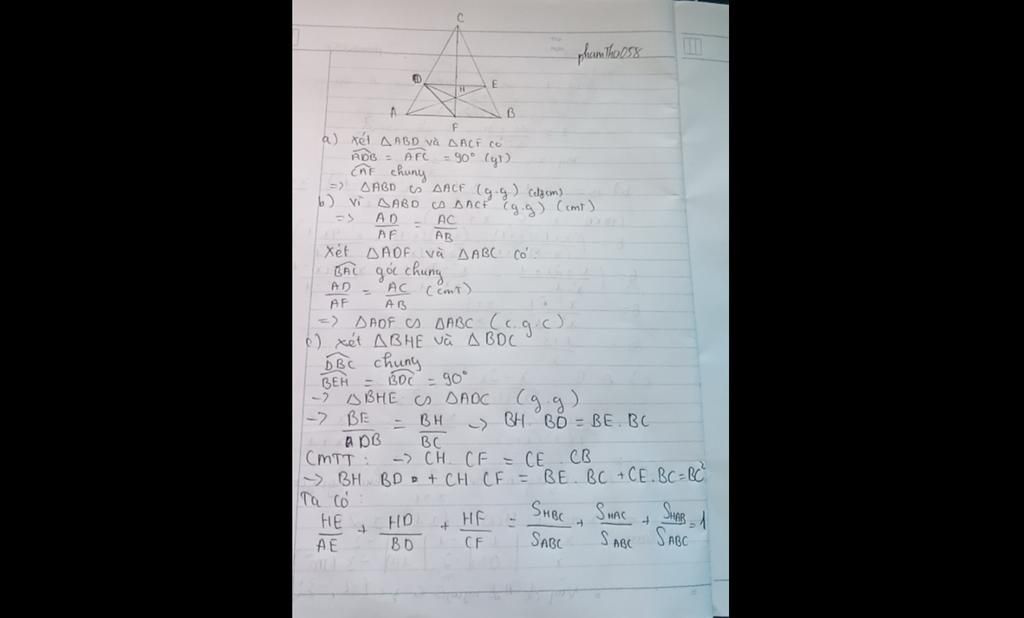 C
phamTho058
D
H
E
A
F
B
a) Xét ΔABD và ΔACF có
ADB = AFC = 90° (gt)
CAF chung
=> ΔABD ∽ ΔACF (g.g) (đpcm)
b) Vì ΔABD ∽ ΔACF (g.g) (cmt)
=> AD/AF = AC/AB
Xét ΔADF và ΔABC có:
BAC góc chung
AD/AF = AC/AB (cmt)
=> ΔADF ∽ ΔABC (c.g.c)
c) xét ΔBHE và ΔBDC
DBC chung
BEH = BDC = 90°
-> ΔBHE ∽ ΔADC (g.g)
-> BE/DB = BH/BC -> BH. BD = BE. BC
CmTT: -> CH. CF = CE. CB
-> BH. BD + CH. CF = BE. BC + CE. BC = BC²
Ta có:
HE/AE + HD/BD + HF/CF = S_HBC/S_ABC + S_HAC/S_ABC + S_HAB/S_ABC = 1